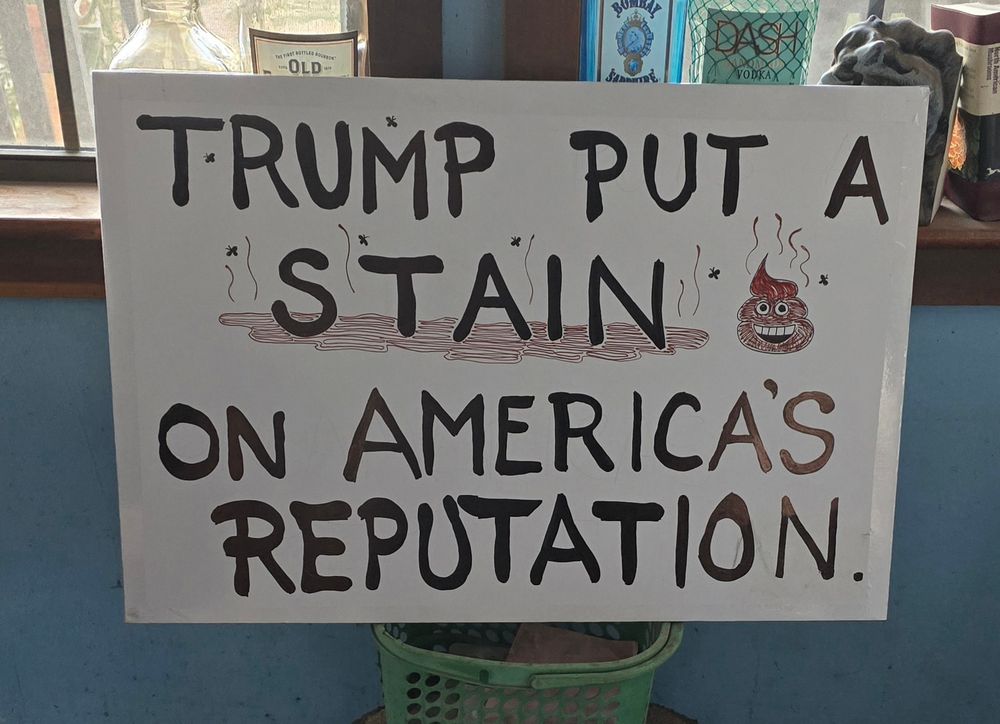 THE FIRST BOTTLED BOURBON
OLD
BOMBAY
SAPPHIRE
DASH
VODKA
North American
TRUMP PUT A
STAIN
ON AMERICA'S
REPUTATION.